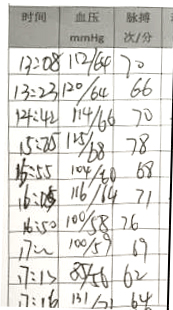 时间 血压 mmHg 脉搏 次/分
13:08 112/64 70
13:23 120/64 66
14:42 114/66 70
15:25 125/68 78
15:55 104/60 68
16:25 116/64 71
16:50 100/58 76
100/59 69
17:13 85/56 62
17:16 131/71 64